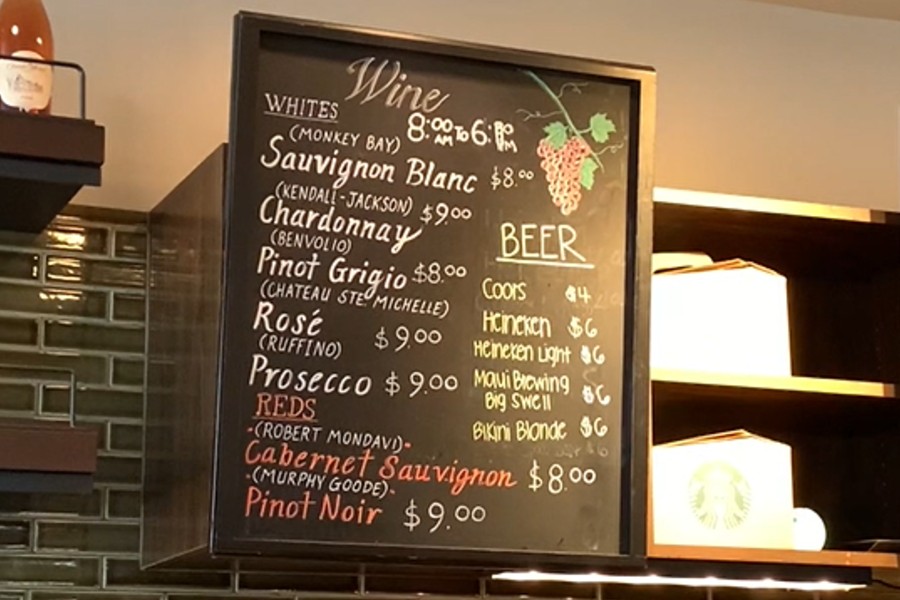 Wine
WHITES
8:00 AM TO 6: PM
(MONKEY BAY)
Sauvignon Blanc $8.00
(KENDALL-JACKSON)
Chardonnay $9.00
(BENVOLIO)
Pinot Grigio $8.00
(CHATEAU STE. MICHELLE)
Rosé $9.00
(RUFFINO)
Prosecco $9.00
REDS
-(ROBERT MONDAVI)-
Cabernet Sauvignon $8.00
-(MURPHY GOODE)-
Pinot Noir $9.00
BEER
Coors $4
Heineken $6
Heineken Light $6
Maui Brewing
Big Swell $6
Bikini Blonde $6